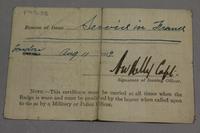 Reason of Issue Service in France
London Aug 11 191
Capt.
Signature of Issuing Officer.
NOTE:—This certificate must be carried at all times when the
Badge is worn and must be produced by the bearer when called upon
to do so by a Military or Police Officer.